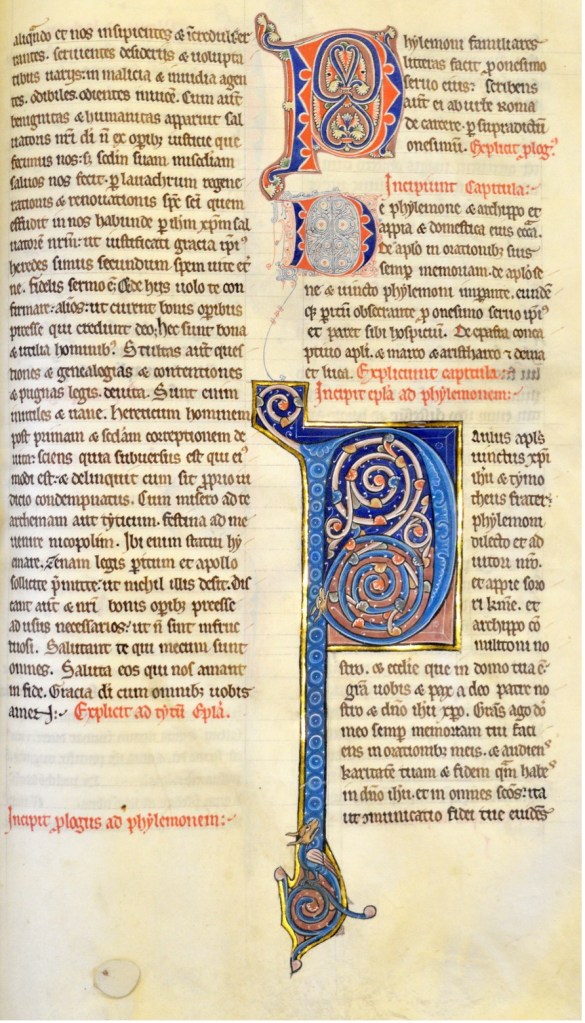 aliq̄ndo et nos insipientes & īcreduli et
rantes. seruientes desideriis & uolupta
tibus uariis: in malicia & inuidia agen
tes. odibiles. odientes inuicē. Cum aut̄
benignitas & humanitas apparuit sal
uatoris nr̄i di n̄ ex opib; iusticie que
fecimus nos: s; scd̄m suam miscdiam
saluos nos fecit. p lauachrum regene
rationis & renouationis sp̄c sc̄i quem
effudit in nos habunde p ihm xp̄m sal
uatorē nr̄m: ut iustificati gracia ipi᾽
heredes simus secundum spem uite et̄
ne. fidelis sermo ē. & de hijs uolo te con
firmare. alios: ut curent bonis op̄ibus
preesse qui credunt deo. hec sunt bona
& utilia hominib᾽. Stultas aut̄ ques
tiones & genealogias & contentiones
& pugnas legis. deuita. Sunt enim
inutiles & uane. Hereticum hominem
post primam & sc̄dam correptionem de
uita: sciens quia subuersus est qui ei᾽
modi est: & delinquit cum sit p̄prio iu
dicio condempnatus. Cum misero ad te
archemam aut tyticum. festina ad me
uenire nicopolim. Ibi enim statui hy
emare. Zenam legis pitum et apollo
sollicite p̄mitte: ut nichil illis desit. Dis
cant aut̄ & nr̄i bonis op̄ib; preesse
ad usus necessarios: ut n̄ sint infruc
tuosi. Salutant te qui mecum sunt
omnes. Saluta eos qui nos amant
in fide. Gracia di cum omnib; uobis
amen:- Explicit ad tytū Epl̄a.
Incipit p̄logus ad phylemonem:-
P
hylemoni familiares
litteras facit p onesimo
seruo eius: scribens
aut̄ ei ab urbe roma
de carcere. p supradictū
onesimū. Explicit p̄log᾽.
Incipiunt Capitula:-
D
e phylemone & archippo et
appia & domestica eius ecc̄a.
De ap̄lo in orationib; suis
semp memoriam. de ap̄lo se
ne & uincto phylemoni impante. eundē
et paret sibi hospicium. De epafra conca
ptiuo apl̄i. & marco & aristharco & dema
et luca. Expliciunt capitula.
Incipit epl̄a ad phylemonem:-
P
aulus apl̄s
uinctus xp̄i
ihu & tymo
theus frater:
phylemoni
dilecto et ad
iutori nr̄o.
et appie soro
ri kme. et
archippo cō
militoni no
stro. & ecclie que in domo tua ē.
gr̄a uobis & pax a deo patre no
stro & dn̄o ihu xp̄o. Gr̄as ago dō
meo semp memoriam tui faci
ens in orationib; meis. & audien᾽
karitatē tuam & fidem q̄m habe᾽
in dn̄o ihu. et in omnes sc̄os: ita
ut cōmunicatio fidei tue euidēs